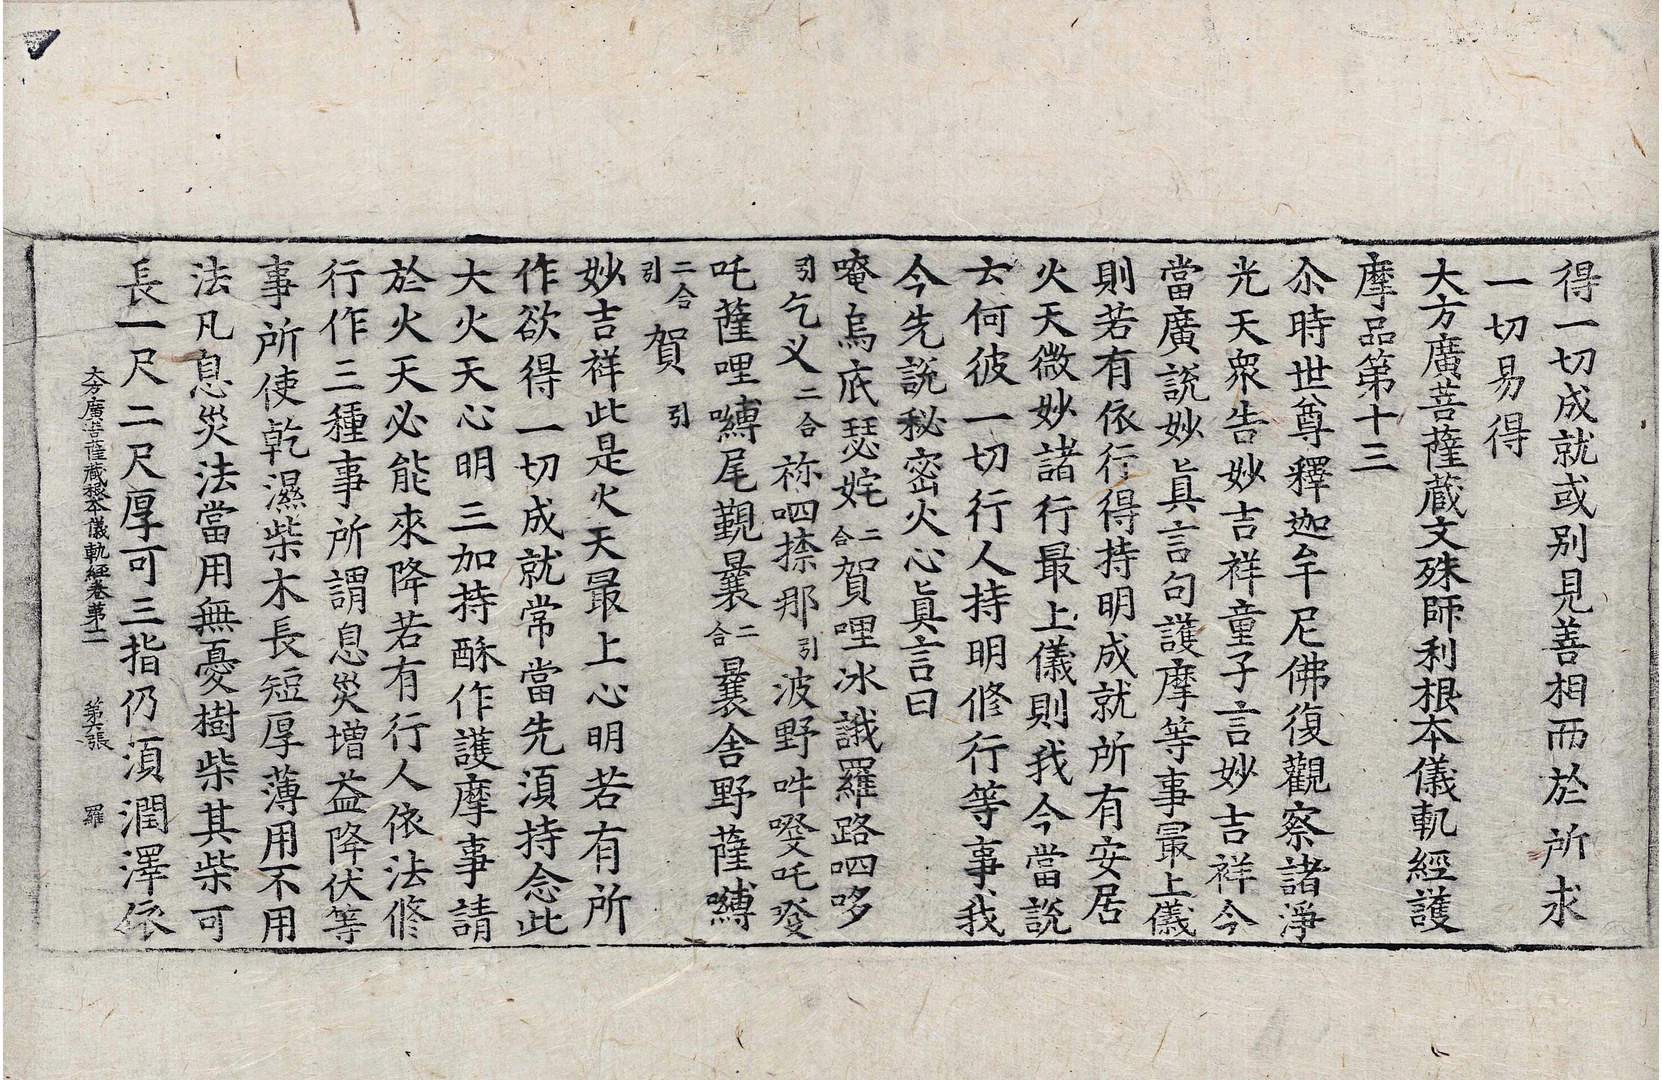 得一切成就或別見善相而於所求
一切易得
大方廣菩薩蔵文殊師利根本儀軌經護
摩品第十三
尒時世尊釋迦牟尼佛復觀察諸淨
光天衆告妙吉祥童子言妙吉祥今
當廣說妙真言句護摩等事最上儀
則若有依行得持明成就所有安居
火天微妙諸行最上儀則我今當說
云何彼一切行人持明修行等事我
今先說秘密火心真言曰
唵烏底瑟姹二合賀哩冰誐羅路呬哆
引乞义二合祢呬捺那引波野吽𠷑吒癹
吒薩哩嚩尾覲曩二合曩舍野薩嚩
二合引賀引
妙吉祥此是火天最上心明若有所
作欲得一切成就常當先須持念此
大火天心明三加持酥作護摩事請
於火天必能來降若有行人依法修
行作三種事所謂息災增益降伏等
事所使乾濕柴木長短厚薄用不用
法凡息災法當用無憂樹柴其柴可
長一尺二尺厚可三指仍須潤澤依
大方廣菩薩蔵根本儀軌經卷第二 第六張 羅